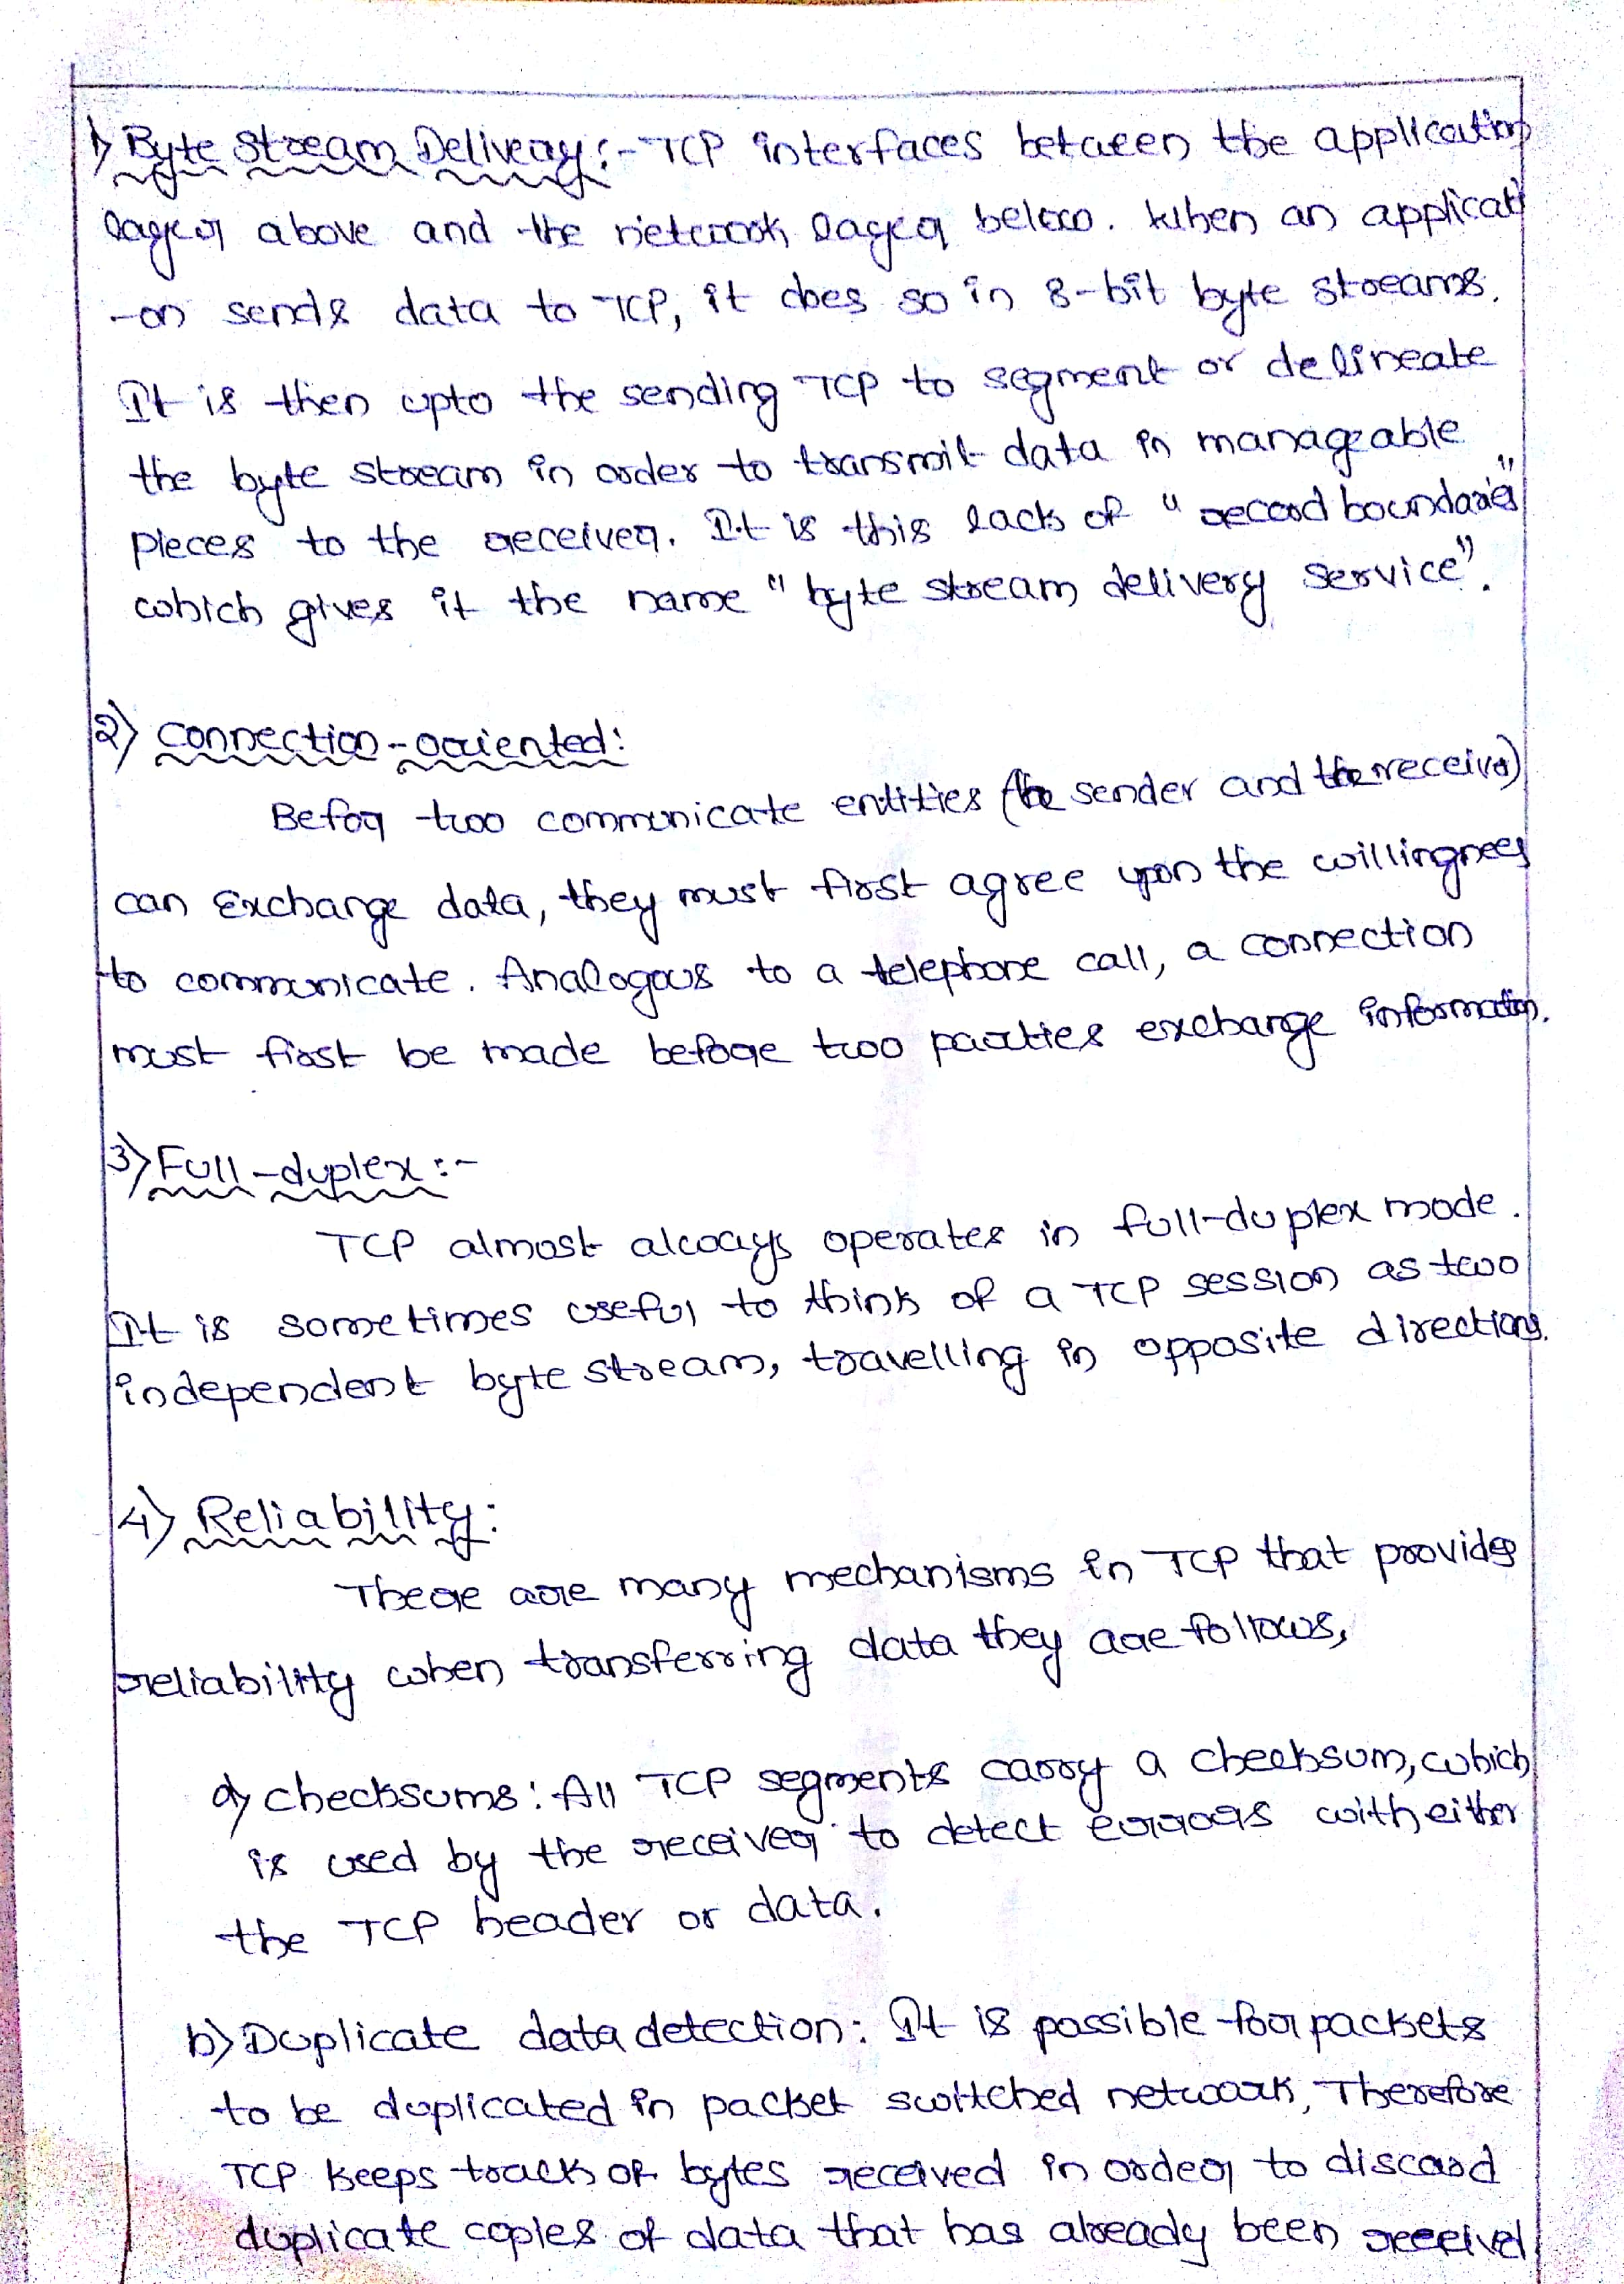 1) Byte Stream Delivery :- TCP interfaces between the application
layer above and the network layer below. When an applicati
-on sends data to TCP, it does so in 8-bit byte streams.
It is then upto the sending TCP to segment or delineate
the byte stream in order to transmit data in manageable
pieces to the receiver. It is this lack of "record boundaries"
which gives it the name "byte stream delivery service".
2) Connection-oriented:
Befor two communicate entities (the sender and the receiver)
can Exchange data, they must first agree upon the willingness
to communicate. Analogous to a telephone call, a connection
must first be made before two parties exchange information.
3) Full-duplex :-
TCP almost always operates in full-duplex mode.
It is sometimes useful to think of a TCP session as two
independent byte stream, travelling in opposite directions.
4) Reliability:
There are many mechanisms in TCP that provides
reliability when transferring data they are follows,
a) checksums: All TCP segments carry a checksum, which
is used by the receiver to detect errors with either
the TCP header or data.
b) Duplicate data detection: It is possible for packets
to be duplicated in packet switched network, Therefore
TCP keeps track of bytes received in order to discard
duplicate copies of data that has already been received